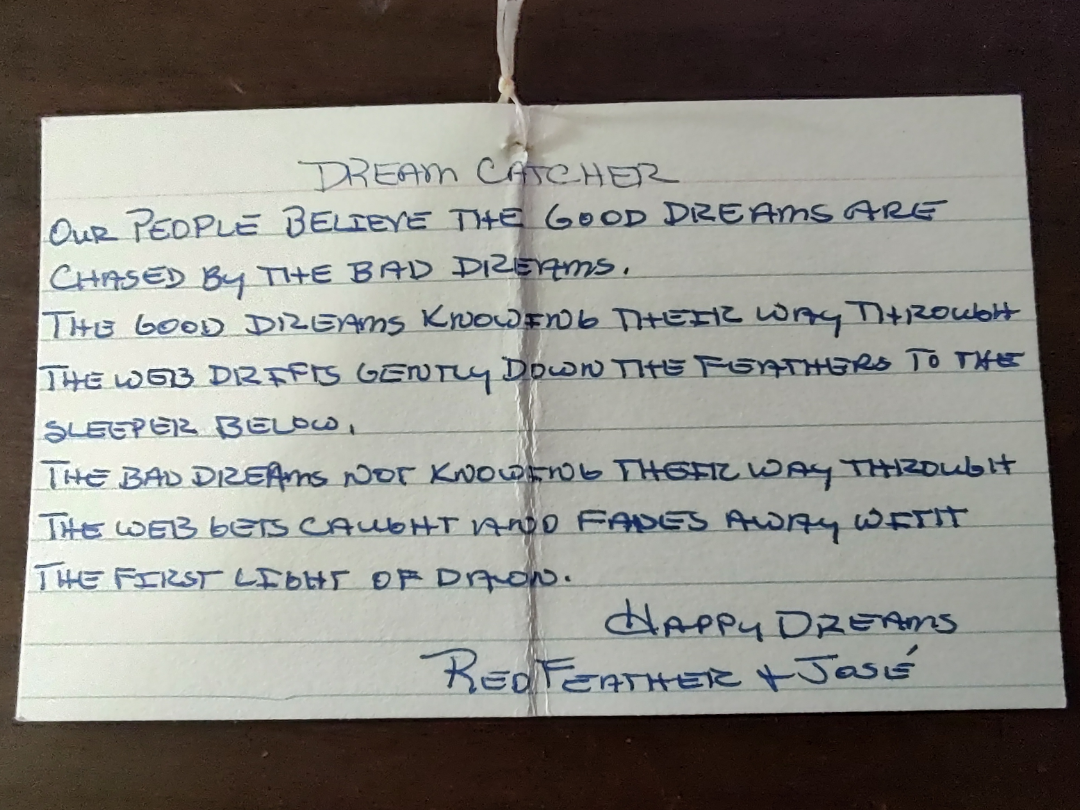 DREAM CATCHER
OUR PEOPLE BELIEVE THE GOOD DREAMS ARE
CHASED BY THE BAD DREAMS.
THE GOOD DREAMS KNOWING THEIR WAY THROUGH
THE WEB DRIFTS GENTLY DOWN THE FEATHERS TO THE
SLEEPER BELOW.
THE BAD DREAMS NOT KNOWING THEIR WAY THROUGH
THE WEB GETS CAUGHT AND FADES AWAY WITH
THE FIRST LIGHT OF DAWN.
HAPPY DREAMS
RED FEATHER & JOSÉ